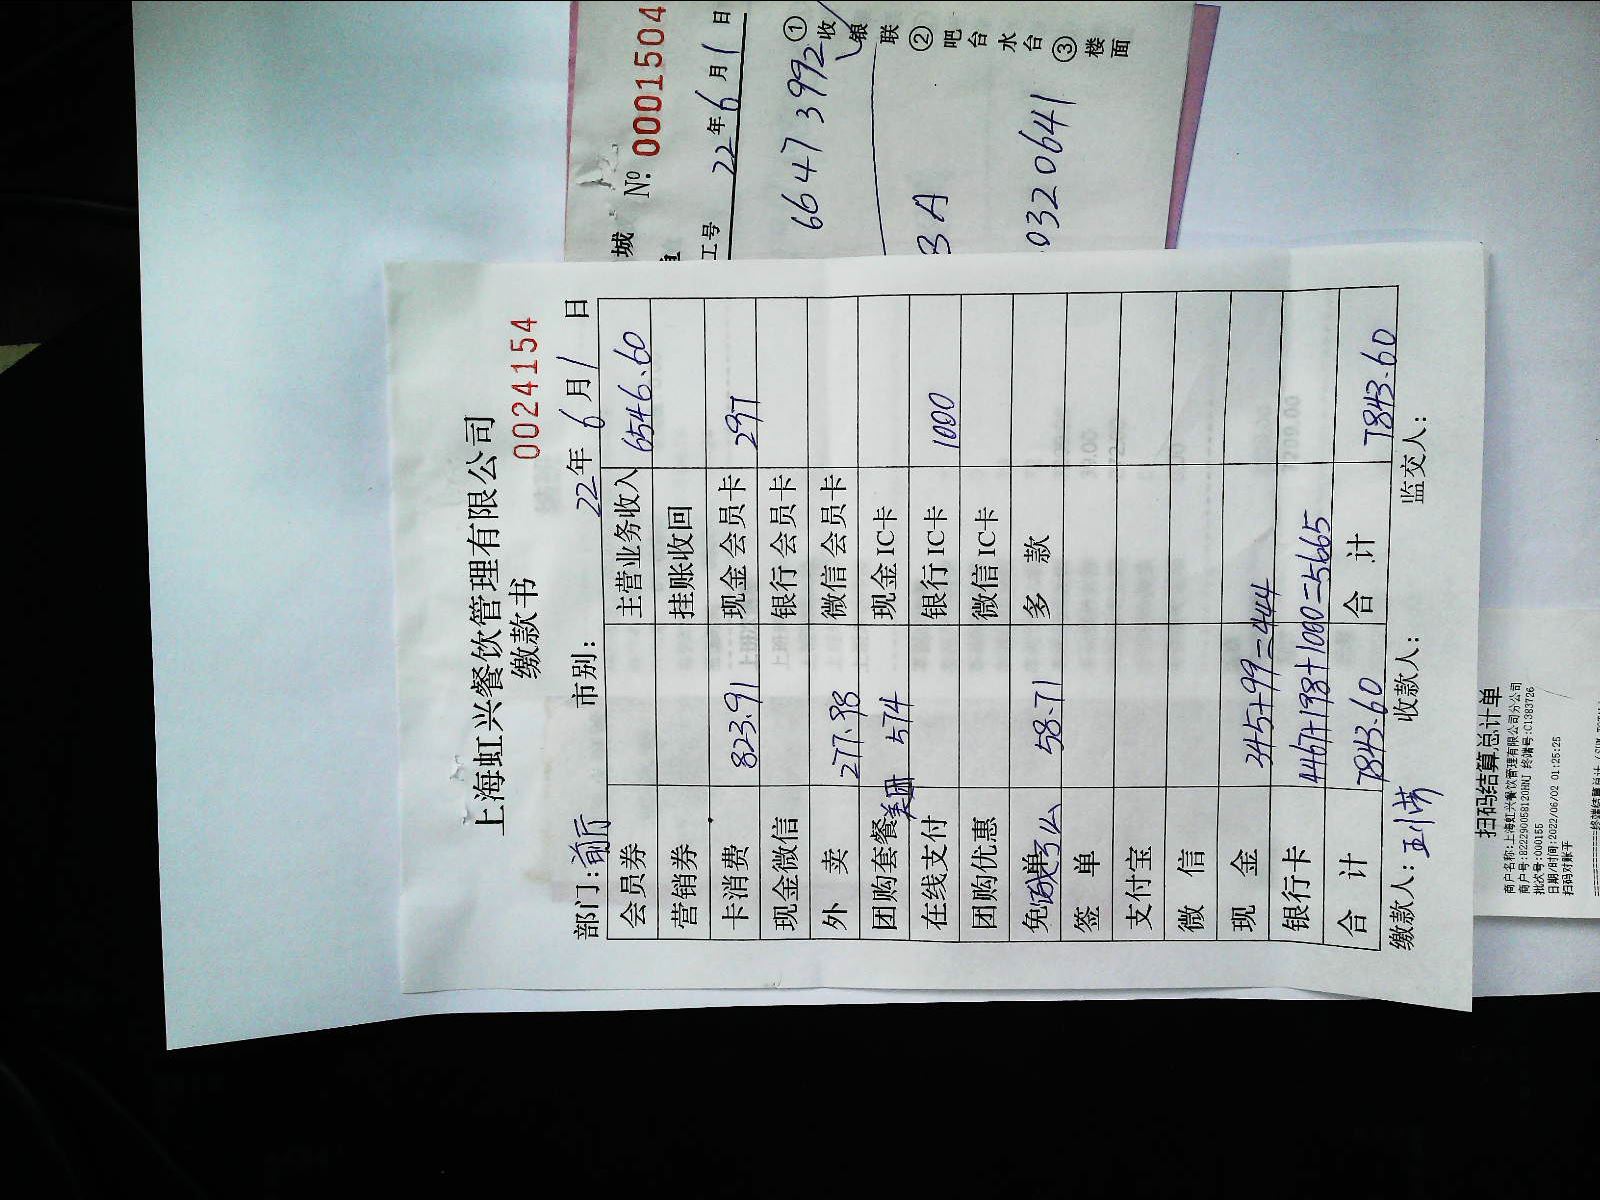 上海虹兴餐饮管理有限公司
缴款书 0024154
部门：前厅 市别： 22年6月1日
会员券 主营业务收入 6546.60
营销券 挂账收回
卡消费 823.91 现金会员卡 297
现金微信 银行会员卡
外卖 277.98 微信会员卡
团购套餐 美团 574 现金IC卡
在线支付 银行IC卡 1000
团购优惠 微信IC卡
免单 58.71 多款
签单
支付宝
微信
现金 345+99=444
银行卡 4467+198+1000=5665
合计 7843.60 合计 7843.60
缴款人： 收款人： 监交人：
城 №: 0001504
工号 22年6月1日
66473992
3A
0320641
①收银联②吧台水台③楼面
扫码结算总计单
商户名称:上海虹兴餐饮管理有限公司分公司
商户号:822290058120BNJ 终端号:C1383726
批次号:000155
日期/时间:2022/06/02 01:25:25
扫码对账平